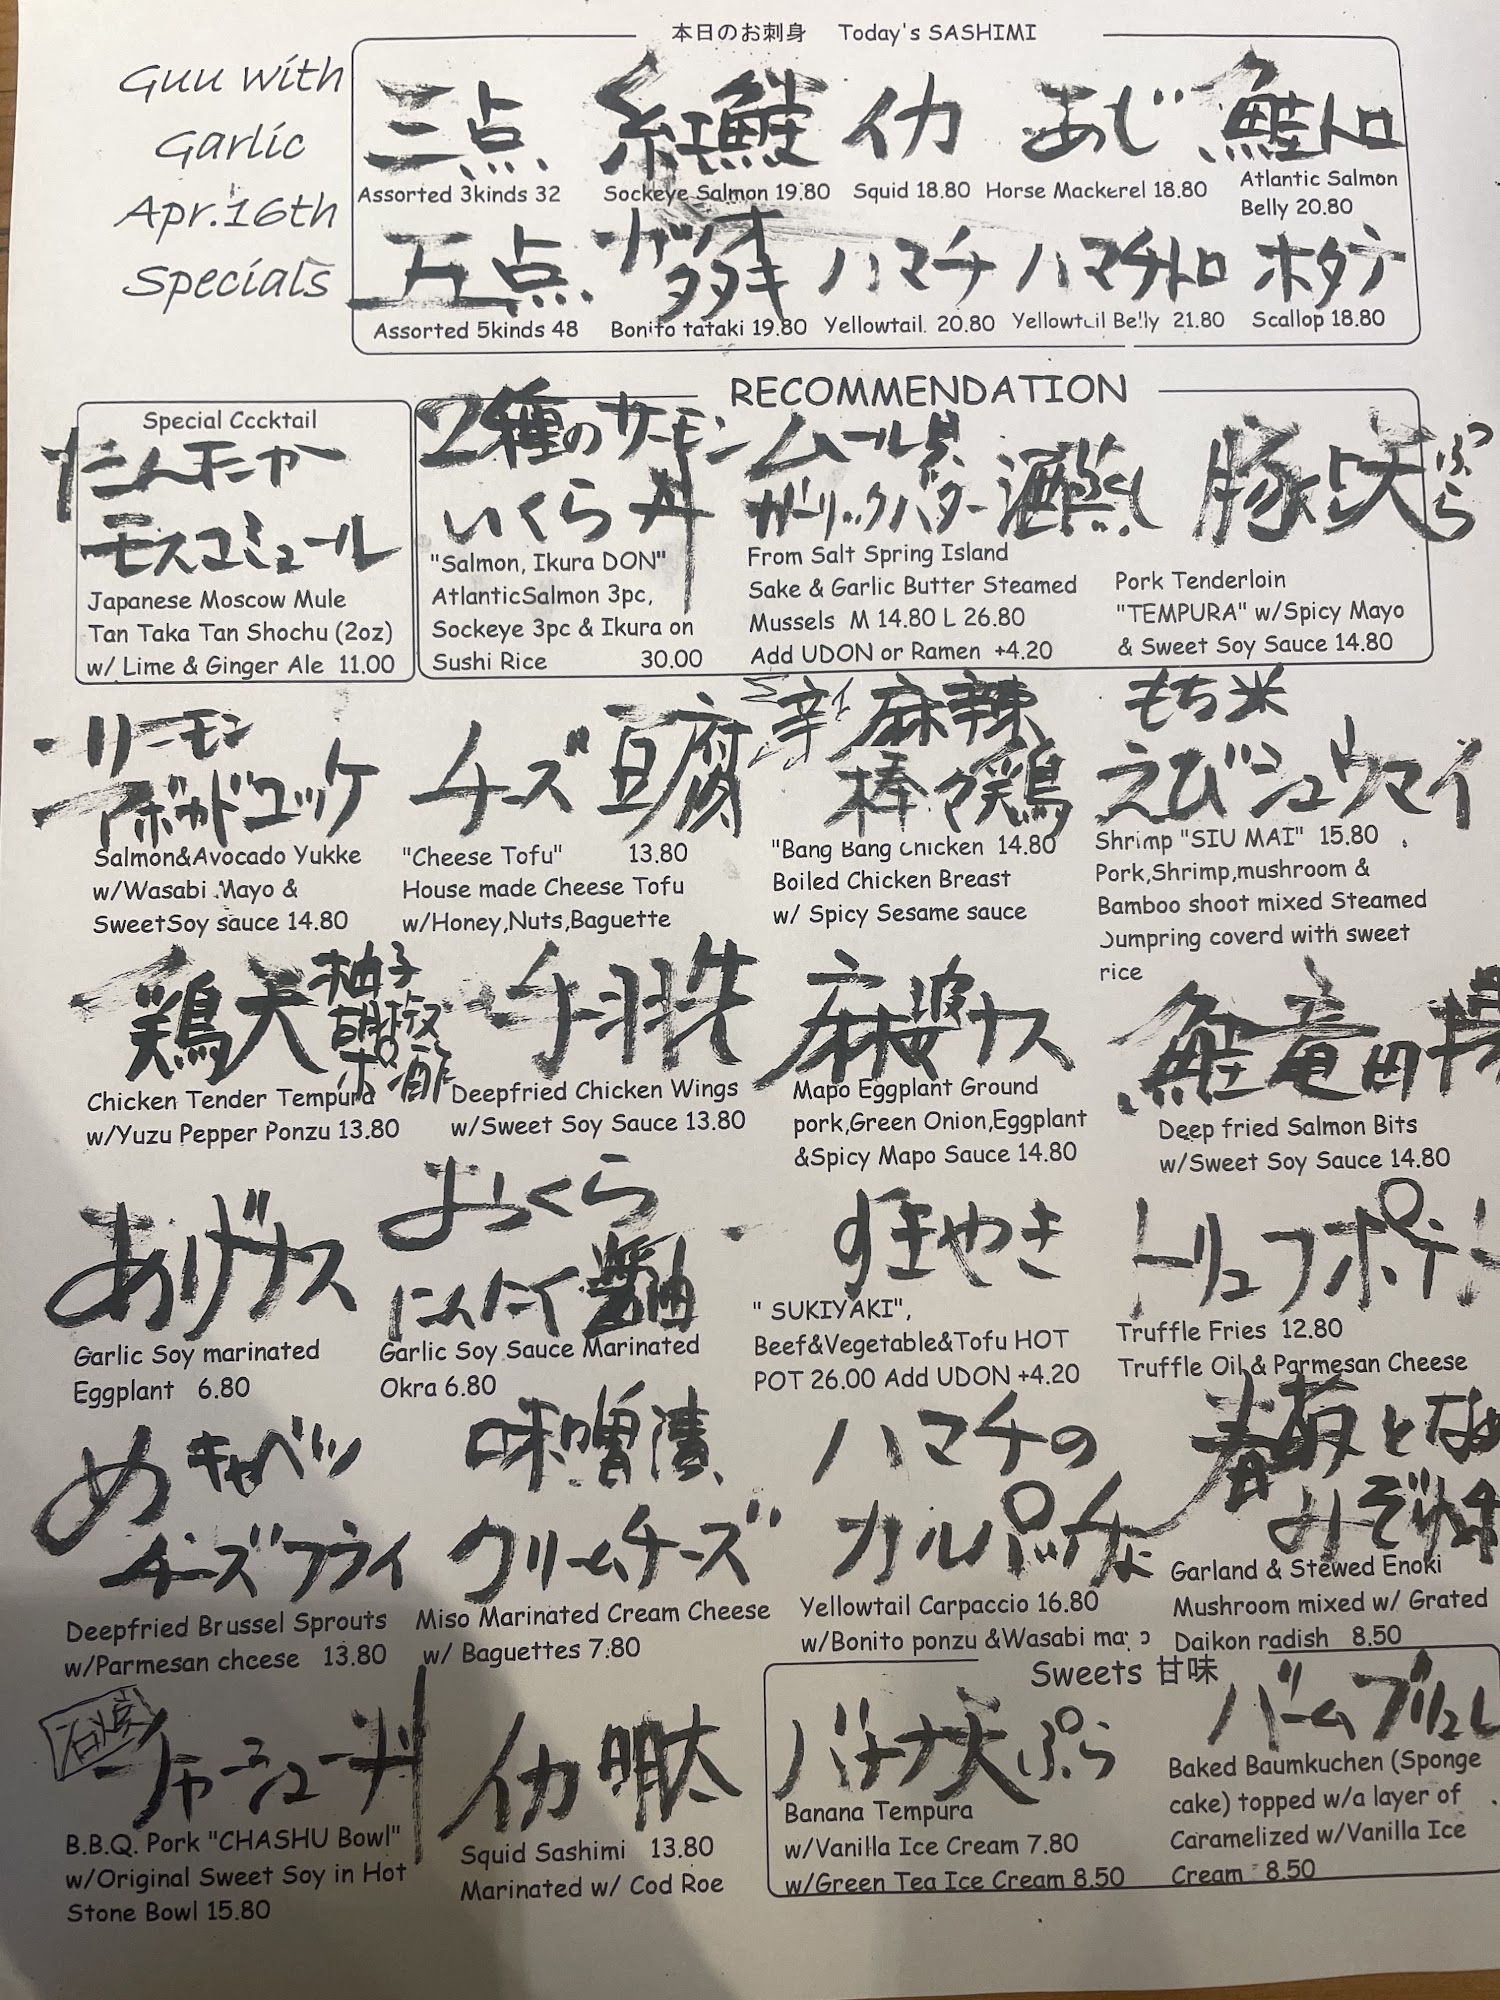 本日のお刺身 Today's SASHIMI
Guu with
Garlic
Apr.16th
Specials
三点
Assorted 3kinds 32
紅鮭
Sockeye Salmon 19.80
イカ
Squid 18.80
あじ
Horse Mackerel 18.80
鮭トロ
Atlantic Salmon
Belly 20.80
五点
Assorted 5kinds 48
カツオ
タタキ
Bonito tataki 19.80
ハマチ
Yellowtail. 20.80
ハマチトロ
Yellowtail Belly 21.80
ホタテ
Scallop 18.80
Special Cocktail
たんたか
モスコミュール
Japanese Moscow Mule
Tan Taka Tan Shochu (2oz)
w/ Lime & Ginger Ale 11.00
RECOMMENDATION
2種のサーモン
いくら丼
"Salmon, Ikura DON"
AtlanticSalmon 3pc,
Sockeye 3pc & Ikura on
Sushi Rice 30.00
ムール貝
ガーリックバター酒蒸し
From Salt Spring Island
Sake & Garlic Butter Steamed
Mussels M 14.80 L 26.80
Add UDON or Ramen +4.20
豚ヒレ天ぷら
Pork Tenderloin
"TEMPURA" w/Spicy Mayo
& Sweet Soy Sauce 14.80
サーモン
アボカドユッケ
Salmon&Avocado Yukke
w/Wasabi Mayo &
SweetSoy sauce 14.80
チーズ豆腐
"Cheese Tofu" 13.80
House made Cheese Tofu
w/Honey,Nuts,Baguette
辛 麻辣
棒々鶏
"Bang Bang Chicken 14.80
Boiled Chicken Breast
w/ Spicy Sesame sauce
もち米
えびシュウマイ
Shrimp "SIU MAI" 15.80
Pork,Shrimp,mushroom &
Bamboo shoot mixed Steamed
Jumpring coverd with sweet
rice
鶏天 柚子
胡椒
ポン酢
Chicken Tender Tempura
w/Yuzu Pepper Ponzu 13.80
手羽先
Deepfried Chicken Wings
w/Sweet Soy Sauce 13.80
麻婆ナス
Mapo Eggplant Ground
pork,Green Onion,Eggplant
&Spicy Mapo Sauce 14.80
鮭竜田揚
Deep fried Salmon Bits
w/Sweet Soy Sauce 14.80
あげナス
Garlic Soy marinated
Eggplant 6.80
おくら
にんにく醤油
Garlic Soy Sauce Marinated
Okra 6.80
すきやき
" SUKIYAKI",
Beef&Vegetable&Tofu HOT
POT 26.00 Add UDON +4.20
トリュフポテト
Truffle Fries 12.80
Truffle Oil & Parmesan Cheese
めキャベツ
チーズフライ
Deepfried Brussel Sprouts
w/Parmesan cheese 13.80
味噌漬
クリームチーズ
Miso Marinated Cream Cheese
w/ Baguettes 7.80
ハマチの
カルパッチョ
Yellowtail Carpaccio 16.80
w/Bonito ponzu &Wasabi mayo
春菊となめ
みぞれ
Garland & Stewed Enoki
Mushroom mixed w/ Grated
Daikon radish 8.50
石焼
チャーシュー丼
B.B.Q. Pork "CHASHU Bowl"
w/Original Sweet Soy in Hot
Stone Bowl 15.80
イカ明太
Squid Sashimi 13.80
Marinated w/ Cod Roe
Sweets 甘味
バナナ天ぷら
Banana Tempura
w/Vanilla Ice Cream 7.80
w/Green Tea Ice Cream 8.50
バームブリュレ
Baked Baumkuchen (Sponge
cake) topped w/a layer of
Caramelized w/Vanilla Ice
Cream 8.50